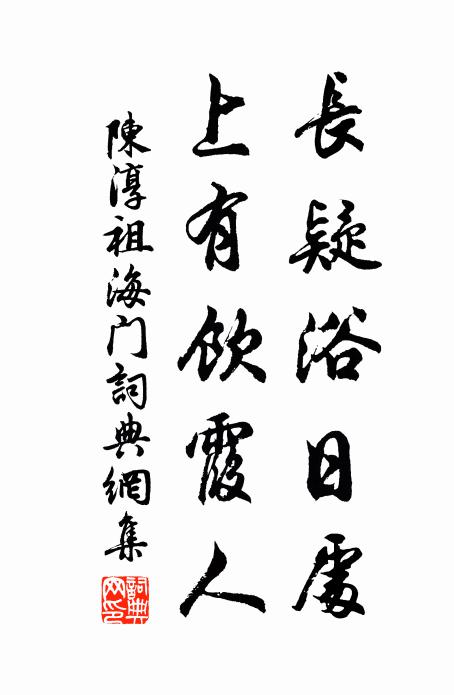 長疑浴日處
上有飲霞人
陳淳祖海门詞典網集
詞典网印